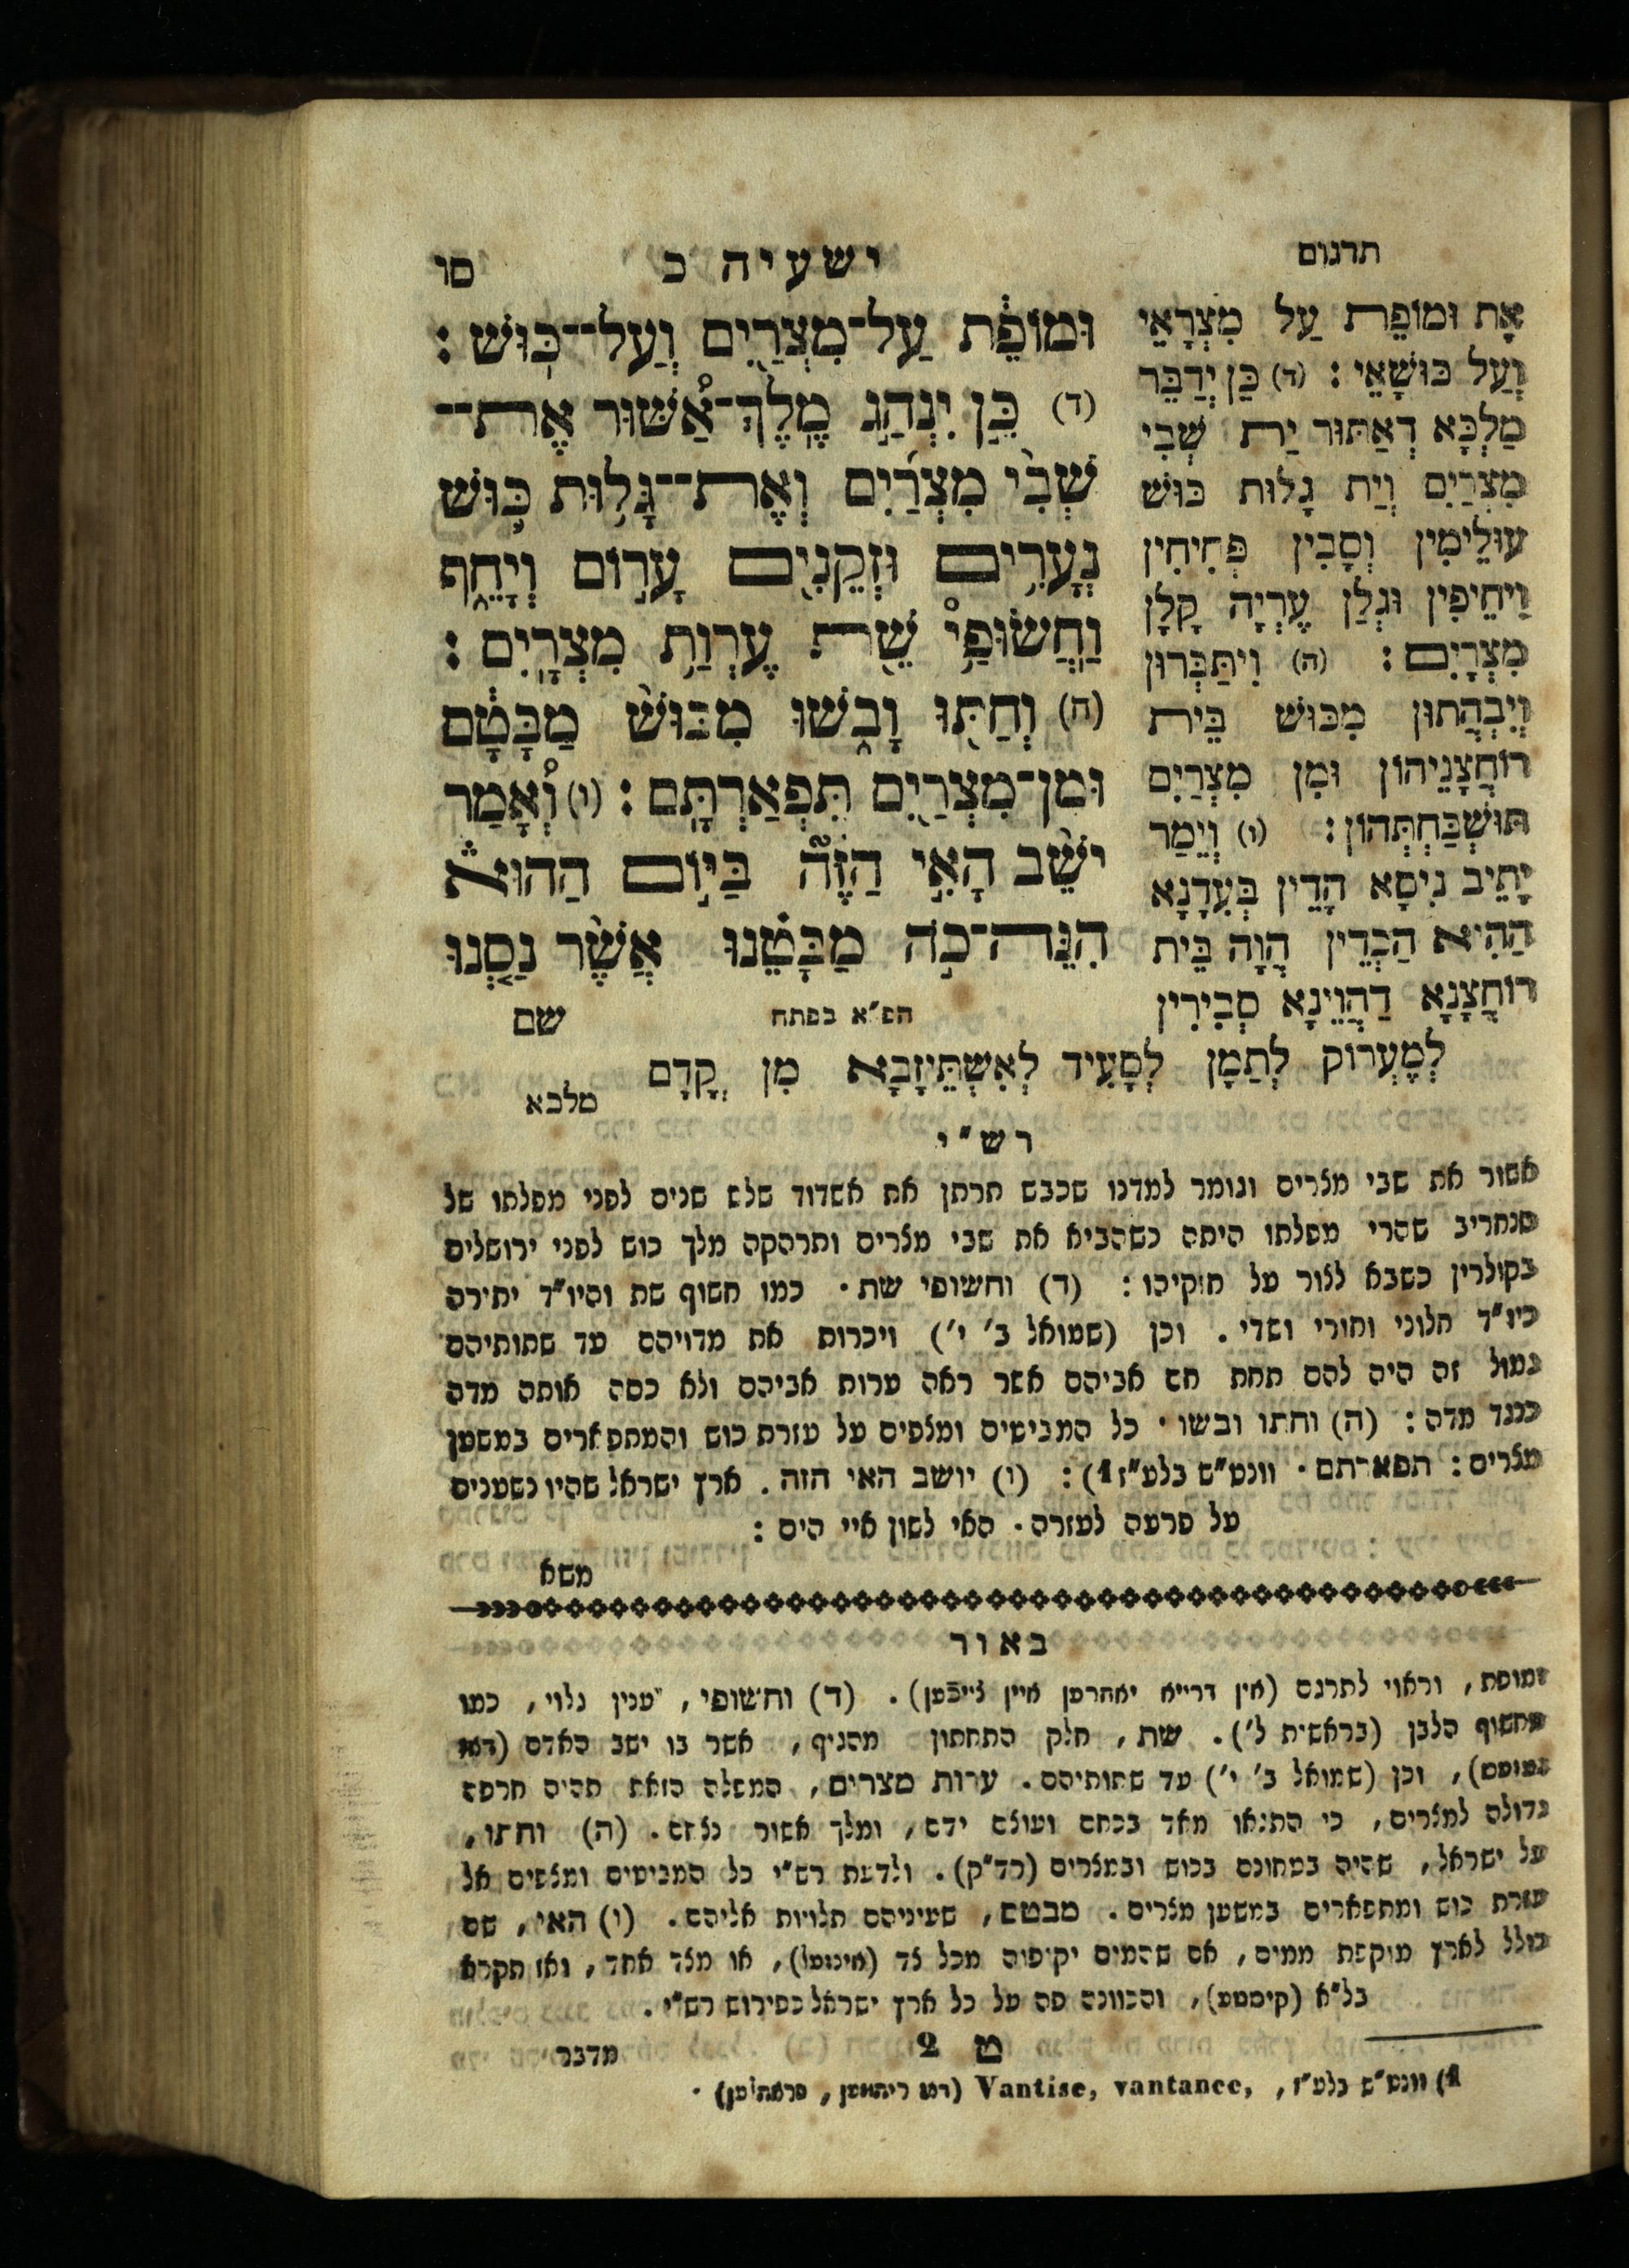 תרגום
ישעיה כ
סו
וּמוֹפֵ֔ת עַל־מִצְרַ֖יִם וְעַל־כּֽוּשׁ׃
(ד) כֵּ֣ן יִנְהַ֣ג מֶֽלֶךְ־אַ֠שּׁוּר אֶת־
שְׁבִ֨י מִצְרַ֜יִם וְאֶת־גָּל֥וּת כּ֛וּשׁ
נְעָרִ֥ים וּזְקֵנִ֖ים עָר֣וֹם וְיָחֵ֑ף
וַחֲשׂוּפַ֥י שֵׁ֖ת עֶרְוַ֥ת מִצְרָֽיִם׃
(ה) וְחַתּ֖וּ וָבֹ֑שׁוּ מִכּוּשׁ֙ מַבָּטָ֔ם
וּמִן־מִצְרַ֖יִם תִּפְאַרְתָּֽם׃ (ו) וְ֠אָמַר
יֹשֵׁ֨ב הָאִ֣י הַזֶּה֮ בַּיּ֣וֹם הַהוּא֒
הִנֵּה־כֹ֣ה מַבָּטֵ֗נוּ אֲשֶׁר֙ נַסְ֤נוּ
הפ״א בפתח
שם
אָת וּמוֹפֵת עַל מִצְרָאֵי
וְעַל כּוּשָׁאֵי׃ (ד) כֵּן יְדַבֵּר
מַלְכָּא דְאַתּוּר יַת שְׁבִי
מִצְרַיִם וְיַת גָלוּת כּוּשׁ
עוּלֵימִין וְסָבִין פְּחִיחִין
וִיחֵיפִין וּגְלַן עֶרְיָה קְלָן
מִצְרָיִם׃ (ה) וְיִתַּבְּרוּן
וְיִבְהֲתוּן מִכּוּשׁ בֵּית
רוֹחֲצָנֵיהוֹן וּמִן מִצְרַיִם
תּוּשְׁבַּחְתְּהוֹן׃ (ו) וְיֵמַר
יָתֵיב נִיסָא הָדֵין בְּעִדָנָא
הַהִיא הַכְדֵין הֲוָה בֵּית
רוֹחֲצָנָא דַהֲוֵינָא סְבִירִין
לְמֶעְרוֹק לְתַמָן לְסָעִיד לְאִשְׁתֵּיזָבָא מִן קֳדָם
מלכא
רש״י
אשור את שבי מצרים וגומר למדנו שכבש תרתן את אשדוד שלש שנים לפני מפלתו של
סנחריב שהרי מפלתו היתה כשהביא את שבי מצרים ותרהקה מלך כוש לפני ירושלים
בקולרין כשבא לצור על חזקיהו׃ (ד) וחשופי שת. כמו חשוף שת והיו״ד יתירה
כיו״ד חלוני וחורי ושדי. וכן (שמואל ב׳ י׳) ויכרות את מדויהם עד שתותיהם
גמול זה היה להם תחת חם אביהם אשר ראה ערות אביהם ולא כסה אותה מדה
כנגד מדה׃ (ה) וחתו ובשו. כל המביטים ומצפים על עזרת כוש והמתפארים במשען
מצרים׃ תפארתם. וונט״ש בלע״ז 1)׃ (ו) יושב האי הזה. ארץ ישראל שהיו נשענים
על פרעה לעזרה. האי לשון איי הים׃
משא
באור
ומופת, וראוי לתרגם (אין דרייא יאהרען איין צייכען). (ד) וחשופי, ענין גלוי, כמו
מחשוף הלבן (בראשית ל׳). שת, חלק התחתון מהגוף, אשר בו ישב האדם (דאז
, וכן (שמואל ב׳ י׳) עד שתותיהם. ערות מצרים, המפלה הזאת תהיה חרפה
גדולה למצרים, כי התגאו מאד בכחם ועוצם ידם, ומלך אשור נצחם. (ה) וחתו,
על ישראל, שהיה בטחונם בכוש ובמצרים (רד״ק). ולדעת רש״י כל המביטים ומצפים אל
עזרת כוש ומתפארים במשען מצרים. מבטם, שעיניהם תלויות אליהם. (ו) האי, שם
כולל לארץ מוקפת ממים, אם שהמים יקיפוה מכל צד (אינזעל), או מצד אחד, ואז תקרא
בל״א (קיסטע), והכוונה פה על כל ארץ ישראל כפירוש רש״י.
ט 2
מדבר
1) וונט״ש בלע״ז, Vantise, vantance, (דאז ריהמען, פראהלען).